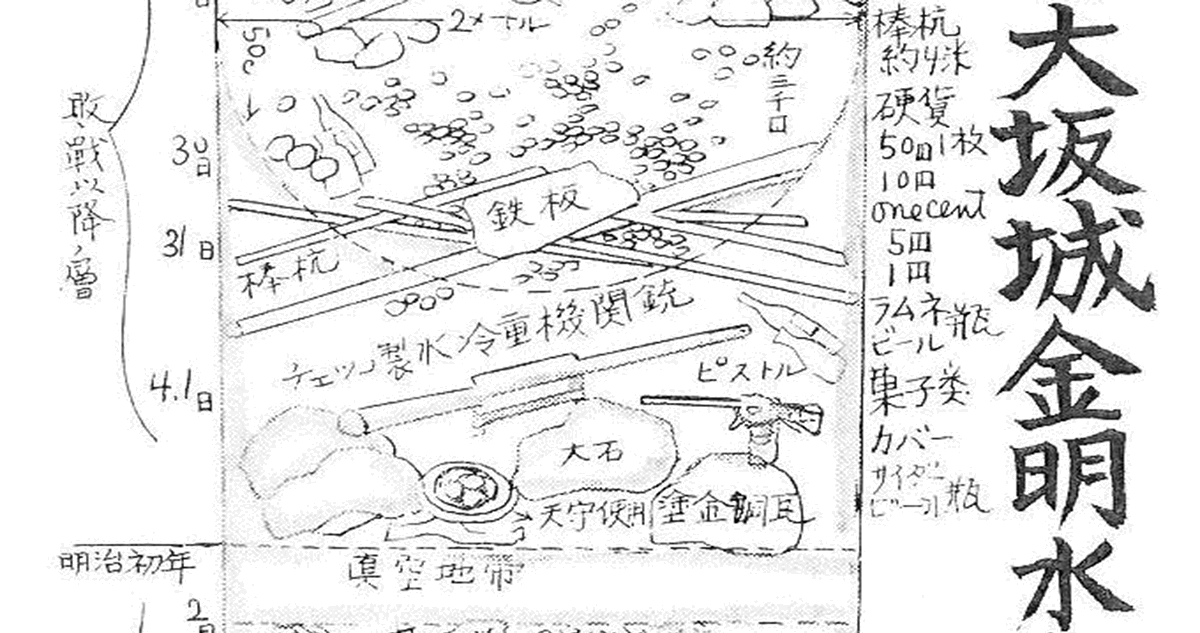 大坂城金明水
棒杭
約4米
硬貨
50円1枚
10円
one cent
5円
1円
ラムネ瓶
ビール
菓子类
カバー
サイダー
ビール瓶
2メートル
50c
約三千口
30日
鉄板
31日
棒杭
敗戦以降ノ層
チェッコ製水冷重機関銃
ピストル
4.1日
大石
天守使用塗金銅瓦
明治初年
真空地帯
2日